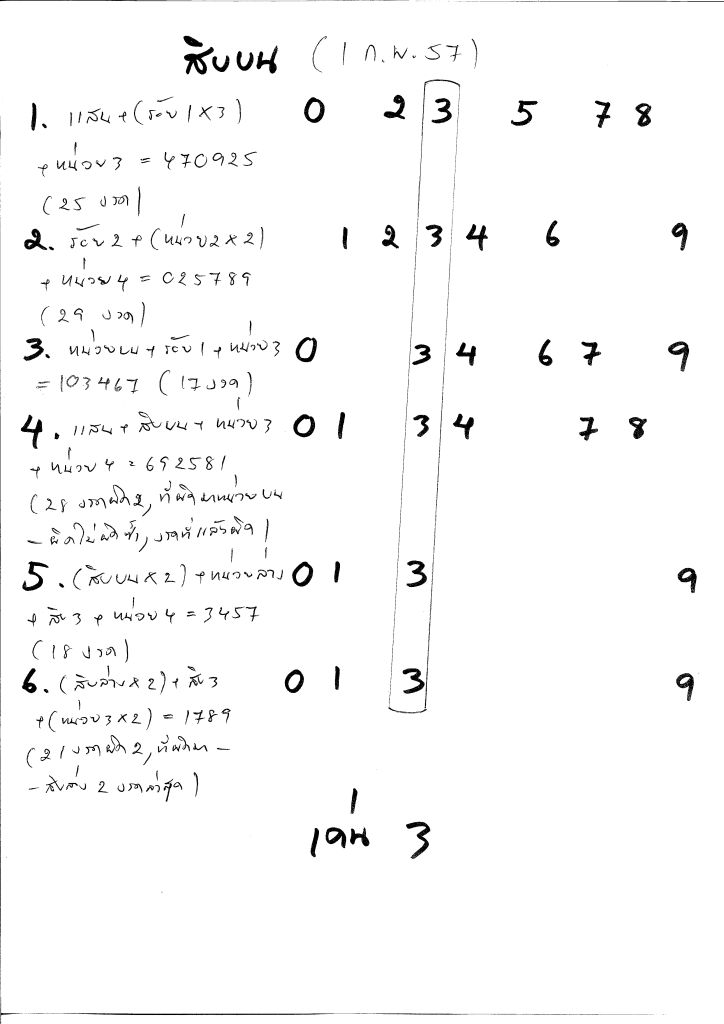 สิบบน (1 ก.พ. 57)
1. แสน + (ร้อย 1 X 3) 0 2 3 5 7 8
+ หน่วย 3 = 470925
(25 งวด)
2. ร้อย 2 + (หน่วย 2 X 2) 1 2 3 4 6 9
+ หน่วย 4 = 025789
(29 งวด)
3. หน่วยบน + ร้อย 1 + หน่วย 3 0 3 4 6 7 9
= 103467 (17 งวด)
4. แสน + สิบบน + หน่วย 3 0 1 3 4 7 8
+ หน่วย 4 = 692581
(28 งวดผิด 2, ที่ผิดมาหน่วยบน
- ผิดไม่ผิดซ้ำ, งวดที่แล้วผิด)
5. (สิบบน X 2) + หน่วยล่าง 0 1 3 9
+ สิบ 3 + หน่วย 4 = 3457
(18 งวด)
6. (สิบล่าง X 2) + สิบ 3 0 1 3 9
+ (หน่วย 3 X 2) = 1789
(21 งวดผิด 2, ที่ผิดมา -
- สิบล่าง 2 งวดล่าสุด)
เด่น 3